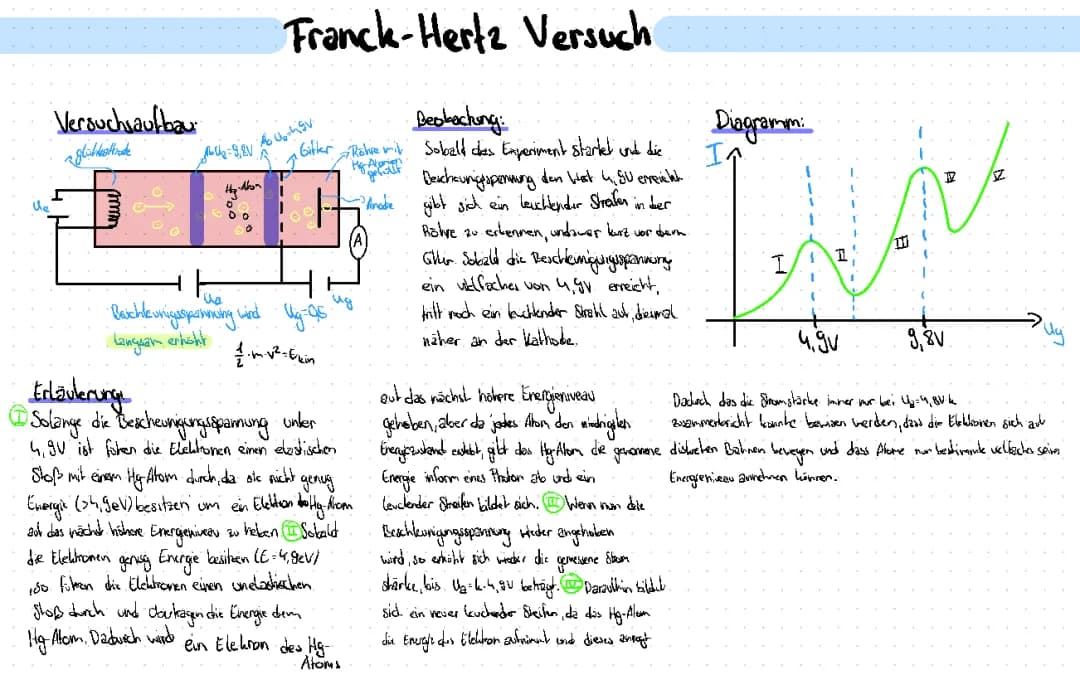 Franck-Hertz Versuch
Versuchsaufbau:
glühkathode
Ab U₂=9,8V
Ab U₀=4,9V
Gitter
Röhre mit
Hg-Atomen
gefüllt
Hg-Atom
Anode
Ue
A
Ua
Ug
Beschleunigungsspannung wird
Ug=0,5
langsam erhöht
½·m·v²=Ekin
Beobachtung:
Sobald das Experiment startet und die
Bescheunigungsspannung den Wert 4,9V erreicht
gibt sich ein leuchtender Streifen in der
Röhre zu erkennen, undzwar kurz vor dem
Gitter. Sobald die Beschleunigungsspannung
ein vielfaches von 4,9V erreicht,
tritt noch ein leuchtender Strahl auf, diesmal
näher an der Kathode.
Diagramm:
I
I
II
III
IV
V
4,9V
9,8V
Ug
Erläuterung:
I Solange die Bescheunigungsspannung unter
4,9V ist führen die Elektronen einen elastischen
Stoß mit einem Hg-Atom durch, da sie nicht genug
Energie (>4,9eV) besitzen um ein Elektron des Hg-Atom
auf das nächst höhere Energieniveau zu heben. II Sobald
die Elektronen genug Energie besitzen (E=4,9eV)
, so führen die Elektronen einen unelastischen
Stoß durch und übertragen die Energie dem
Hg-Atom. Dadurch wird ein Elektron des Hg-
Atoms
auf das nächst höhere Energieniveau
gehoben, aber da jedes Atom den niedrigsten
Energiezustand anstrebt, gibt das Hg-Atom die gewonnene
Energie inform eines Photon ab und ein
leuchtender Streifen bildet sich. III Wenn nun die
Beschleunigungsspannung wieder angehoben
wird, so erhöht sich wieder die gemessene Strom
stärke, bis U₂=k·4,9V beträgt. IV Daraufhin bildet
sich ein neuer leuchender Streifen, da das Hg-Atom
die Energie des Elektron aufnimmt und dieses anregt
Dadurch das die Stromstärke immer nur bei U₂=4,9V·k
zusammenbricht konnte bewiesen werden, dass die Elektronen sich auf
diskreten Bahnen bewegen und dass Atome nur bestimmte vielfache seiner
Energieniveau annehmen können.